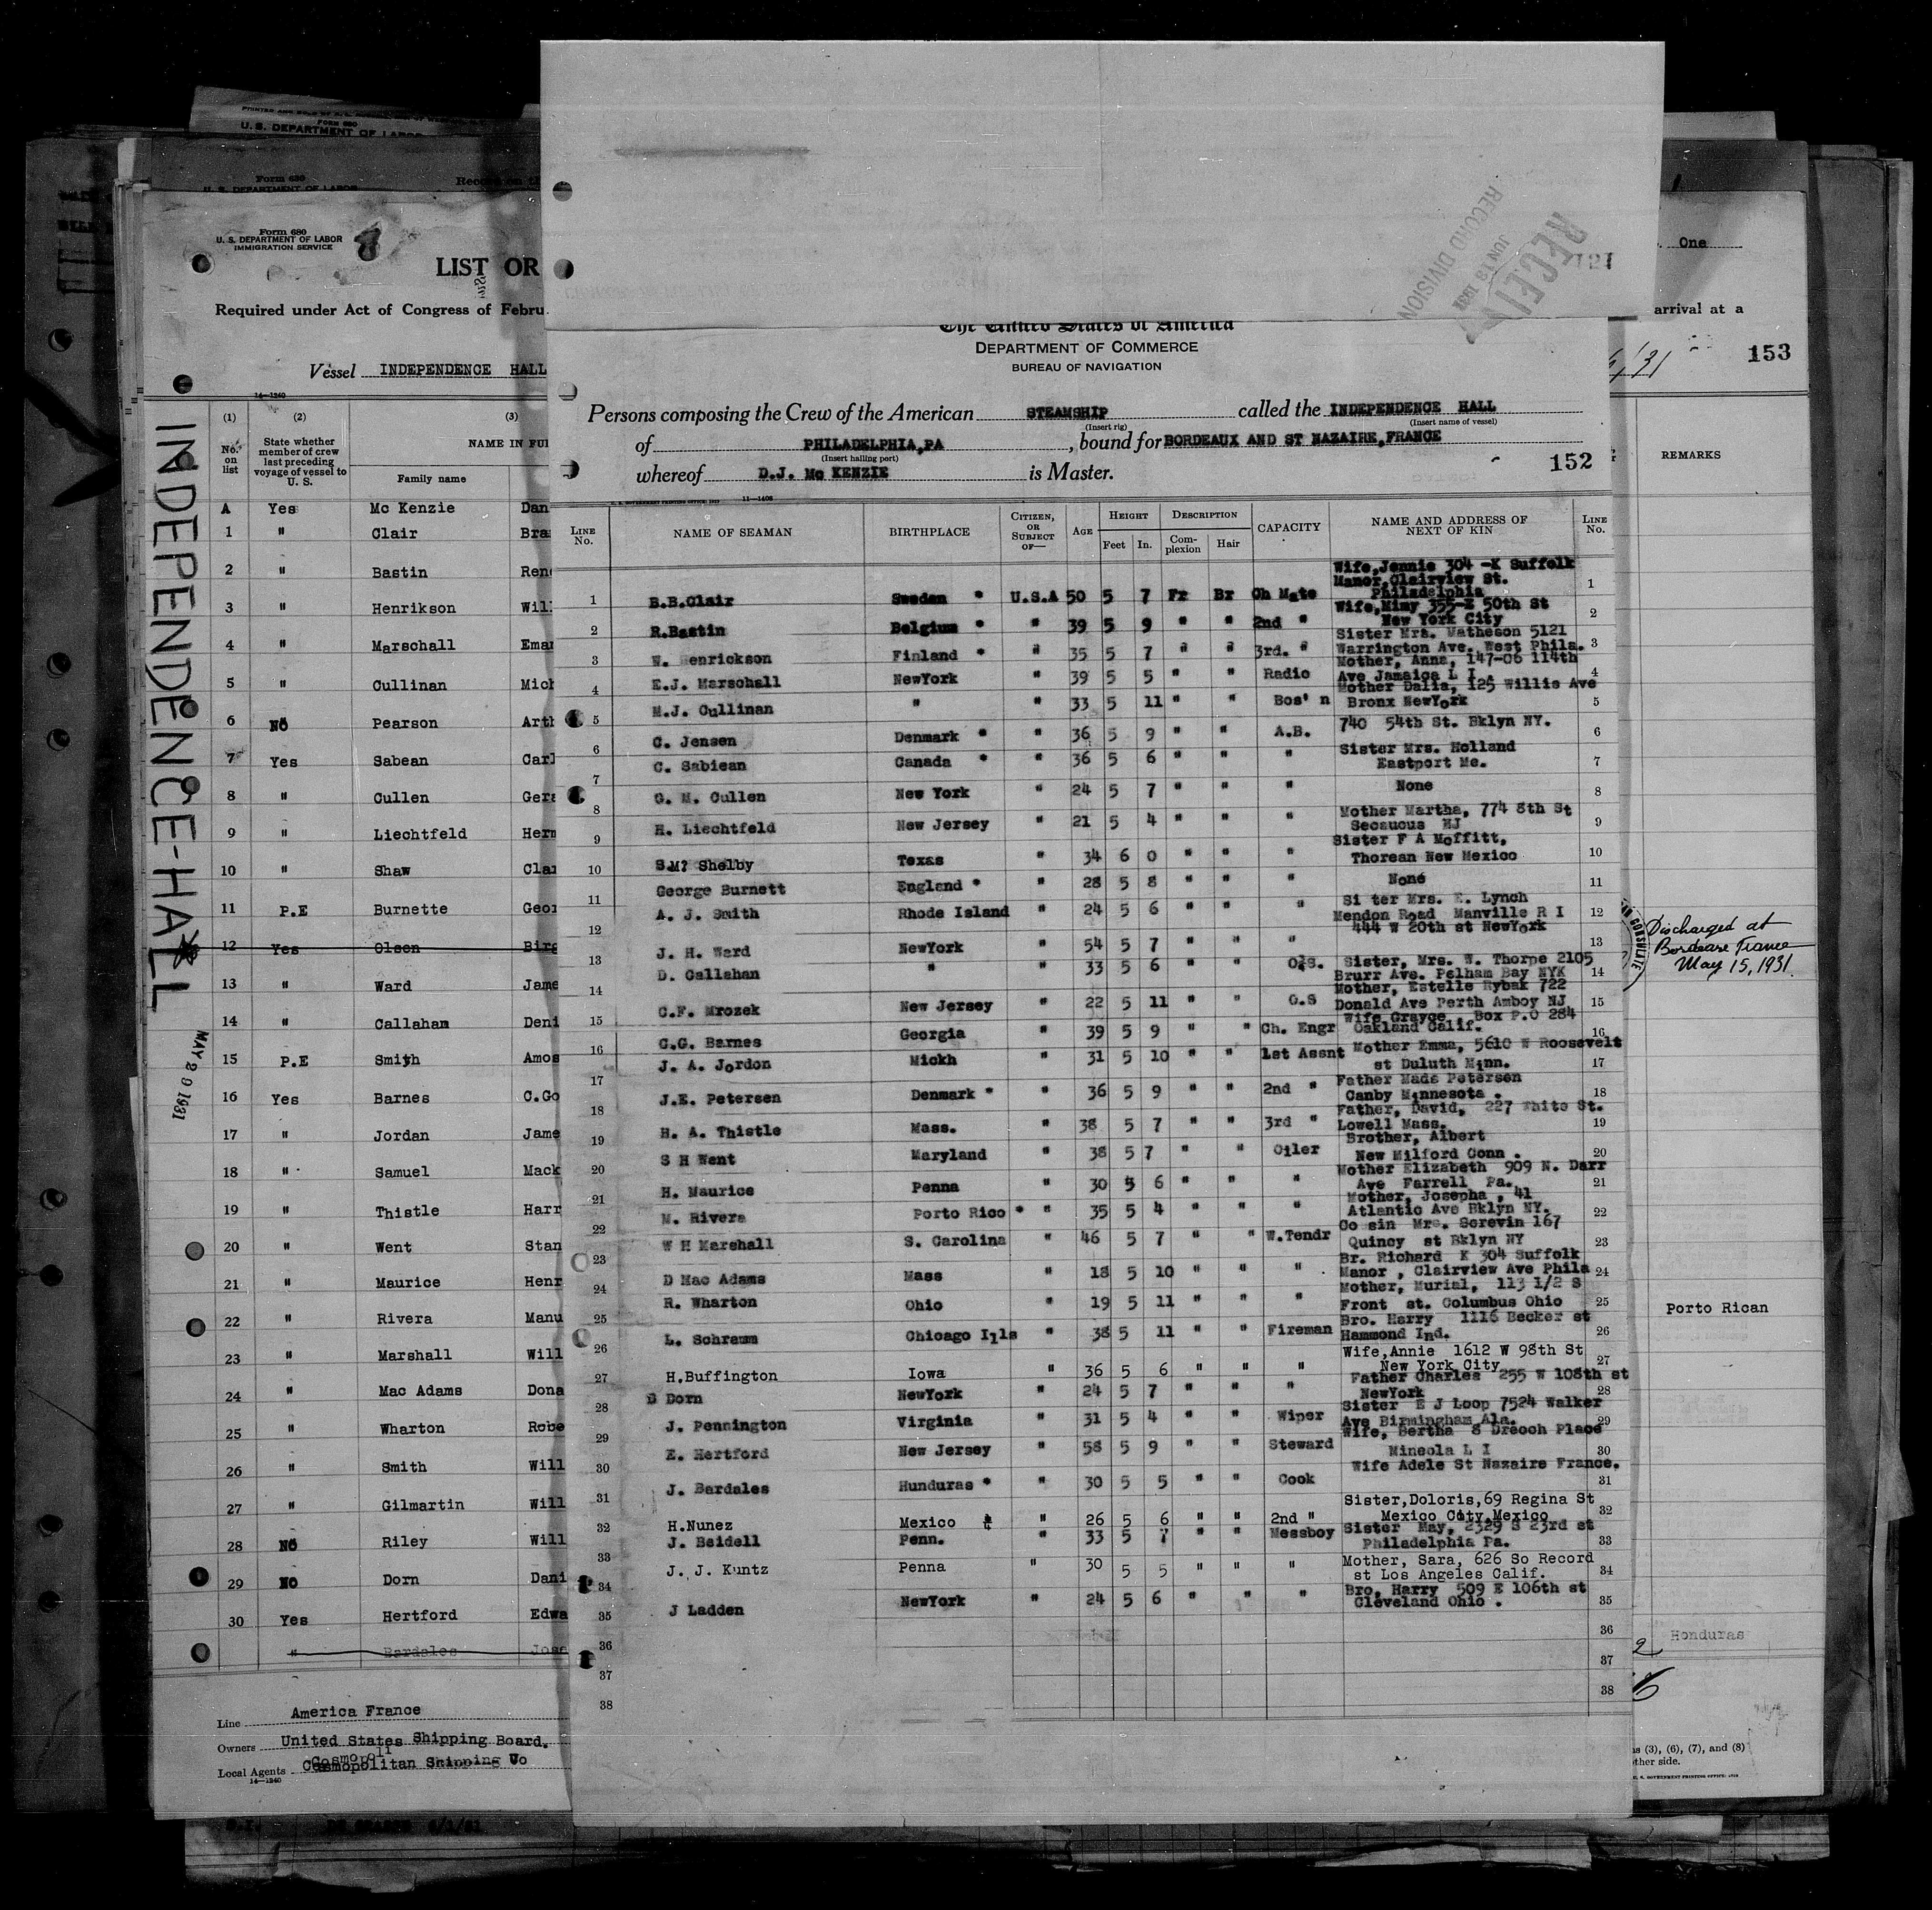 PRINTER AND SOLD BY
FORM 680
U. S. DEPARTMENT OF LABOR
Form 680
U. S. DEPARTMENT OF LABOR
Form 680
U. S. DEPARTMENT OF LABOR
IMMIGRATION SERVICE
LIST OR
Required under Act of Congress of Febru
Vessel INDEPENDENCE HALL
14—1240
(1) (2) (3)
No. on list
State whether member of crew last preceding voyage of vessel to U. S.
NAME IN FUL
Family name
A Yes Mc Kenzie Dan
1 " Clair Bra
2 " Bastin Ren
3 " Henrikson Will
4 " Marschall Eman
5 " Cullinan Mich
6 NO Pearson Arth
7 Yes Sabean Carl
8 " Cullen Gera
9 " Liechtfeld Herm
10 " Shaw Clar
11 P.E Burnette Geor
12 Yes Olsen Birg
13 " Ward Jame
14 " Callaham Deni
15 P.E Smith Amos
16 Yes Barnes C.Go
17 " Jordan Jame
18 " Samuel Mack
19 " Thistle Harr
20 " Went Stan
21 " Maurice Henr
22 " Rivera Manu
23 " Marshall Will
24 " Mac Adams Dona
25 " Wharton Robe
26 " Smith Will
27 " Gilmartin Will
28 NO Riley Will
29 NO Dorn Dani
30 Yes Hertford Edwa
" Bardales Jose
Line America France
Owners United States Shipping Board.
Cosmopoli
Local Agents Cosmopolitan Shipping Co
14—1240
INDEPENDENCE-HALL
MAY 20 1931
RECEI
JUN 18 1931
RECORD DIVISION
121
The United States of America
DEPARTMENT OF COMMERCE
BUREAU OF NAVIGATION
Persons composing the Crew of the American STEAMSHIP called the INDEPENDENCE HALL
(Insert rig) (Insert name of vessel)
of PHILADELPHIA,PA, bound for BORDEAUX AND ST NAZAIRE,FRANCE
(Insert hailing port)
whereof D.J. Mc KENZIE is Master.
152
U. S. GOVERNMENT PRINTING OFFICE: 1929 11—1406
LINE No. NAME OF SEAMAN BIRTHPLACE CITIZEN, OR SUBJECT OF— AGE HEIGHT Feet In. DESCRIPTION Complexion Hair CAPACITY NAME AND ADDRESS OF NEXT OF KIN LINE No.
1 B.B.Clair Sweden * U.S.A 50 5 7 Fr Br Ch Mate Wife,Jennie 304 -K Suffolk Manor,Clairview St. Philadelphia 1
2 R.Bastin Belgium * " 39 5 9 " " 2nd " Wife,Mimy 355-E 50th St New York City 2
3 W. Henrickson Finland * " 35 5 7 " " 3rd. " Sister Mrs. Matheson 5121 Warrington Ave. West Phila. 3
4 E.J. Marschall NewYork " 39 5 5 " " Radio Mother, Anna, 147-06 114th Ave Jamaica L I . 4
5 M.J. Cullinan " " 33 5 11 " " Bos' n Mother Dalia, 125 Willis Ave Bronx NewYork 5
6 C. Jensen Denmark * " 36 5 9 " " A.B. 740 54th St. Bklyn NY. 6
7 C. Sabiean Canada * " 36 5 6 " " " Sister Mrs. Holland Eastport Me. 7
8 G. M. Cullen New York " 24 5 7 " " " None 8
9 H. Liechtfeld New Jersey " 21 5 4 " " " Mother Martha, 774 8th St Secaucus NJ 9
10 S.M? Shelby Texas " 34 6 0 " " " Sister F A Moffitt, Thorean New Mexico 10
11 George Burnett England * " 28 5 8 " " " None 11
12 A. J. Smith Rhode Island " 24 5 6 " " " Si ter Mrs. E. Lynch Mendon Road Manville R I 12
13 J. H. Ward NewYork " 54 5 7 " " " 444 W 20th st NewYork 13
14 D. Callahan " " 33 5 6 " " O.S. Sister, Mrs. W. Thorpe 2105 Brurr Ave. Pelham Bay NYK 14
15 C.F. Mrozek New Jersey " 22 5 11 " " O.S Mother, Estelle Rybak 722 Donald Ave Perth Amboy NJ 15
16 C.G. Barnes Georgia " 39 5 9 " " Ch. Engr Wife Grayce , Box P.O 284 Oakland Calif. 16
17 J. A. Jordon Mickh " 31 5 10 " " 1st Assnt Mother Emma, 5610 W Roosevelt st Duluth Minn. 17
18 J.E. Petersen Denmark * " 36 5 9 " " 2nd " Father Mads Petersen Canby Minnesota . 18
19 H. A. Thistle Mass. " 38 5 7 " " 3rd " Father, David, 227 White St. Lowell Mass. 19
20 S H Went Maryland " 38 5 7 " " Oiler Brother, Albert New Milford Conn . 20
21 H. Maurice Penna " 30 5 6 " " " Mother Elizabeth 909 N. Darr Ave Farrell Pa. 21
22 M. Rivera Porto Rico * " 35 5 4 " " " Mother, Josepha , 41 Atlantic Ave Bklyn NY. 22
23 W H Marshall S. Carolina " 46 5 7 " " W.Tendr Co sin Mrs. Screvin 167 Quincy st Bklyn NY 23
24 D Mac Adams Mass " 18 5 10 " " " Br. Richard K 304 Suffolk Manor , Clairview Ave Phila 24
25 R. Wharton Ohio " 19 5 11 " " " Mother, Murial, 113 1/2 S Front st. Columbus Ohio 25
26 L. Schramm Chicago Ills " 38 5 11 " " Fireman Bro. Harry 1116 Becker st Hammond Ind. 26
27 H.Buffington Iowa " 36 5 6 " " " Wife,Annie 1612 W 98th St New York City 27
28 D Dorn NewYork " 24 5 7 " " " Father Charles 255 W 108th st NewYork 28
29 J. Pennington Virginia " 31 5 4 " " Wiper Sister E J Loop 7524 Walker Ave Birmingham Ala. 29
30 E. Hertford New Jersey " 58 5 9 " " Steward Wife, Bertha 8 Dreoch Place Mineola L I 30
31 J. Bardales Hunduras * " 30 5 5 " " Cook Wife Adele St Nazaire France. 31
32 H.Nunez Mexico * " 26 5 6 " " 2nd " Sister,Doloris,69 Regina St Mexico City,Mexico 32
33 J. Beidell Penn. " 33 5 7 " " Messboy Sister May, 2329 S 23rd st Philadelphia Pa. 33
34 J. J. Kuntz Penna " 30 5 5 " " " Mother, Sara, 626 So Record st Los Angeles Calif. 34
35 J Ladden NewYork " 24 5 6 " " " Bro. Harry 509 E 106th st Cleveland Ohio . 35
36 36
37 37
38 38
One
arrival at a
153
REMARKS
CONSULATE
Discharged at
Bordeaux France
May 15, 1931
Porto Rican
Honduras
ns (3), (6), (7), and (8)
ther side.
U. S. GOVERNMENT PRINTING OFFICE